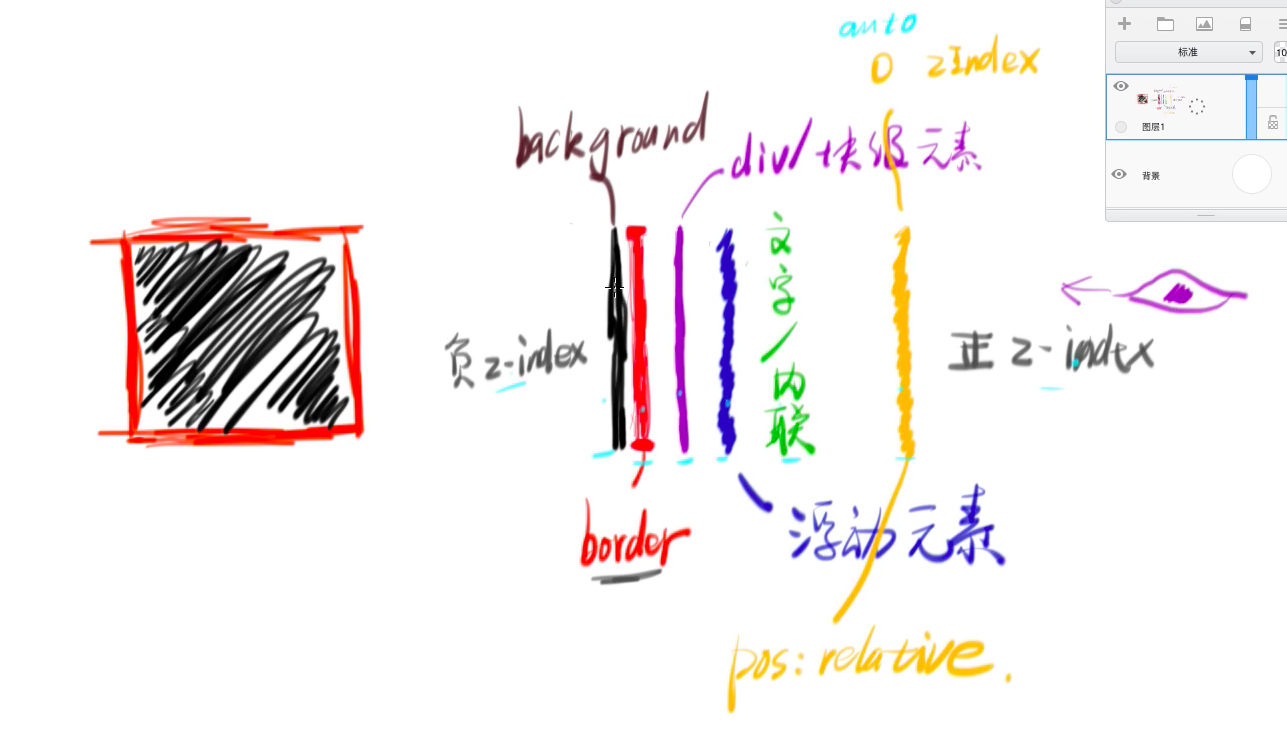 auto
0 zIndex
background
div/块级元素
文字/内联
负z-index
正z-index
border
浮动元素
pos:relative.
标准
10
图层1
背景